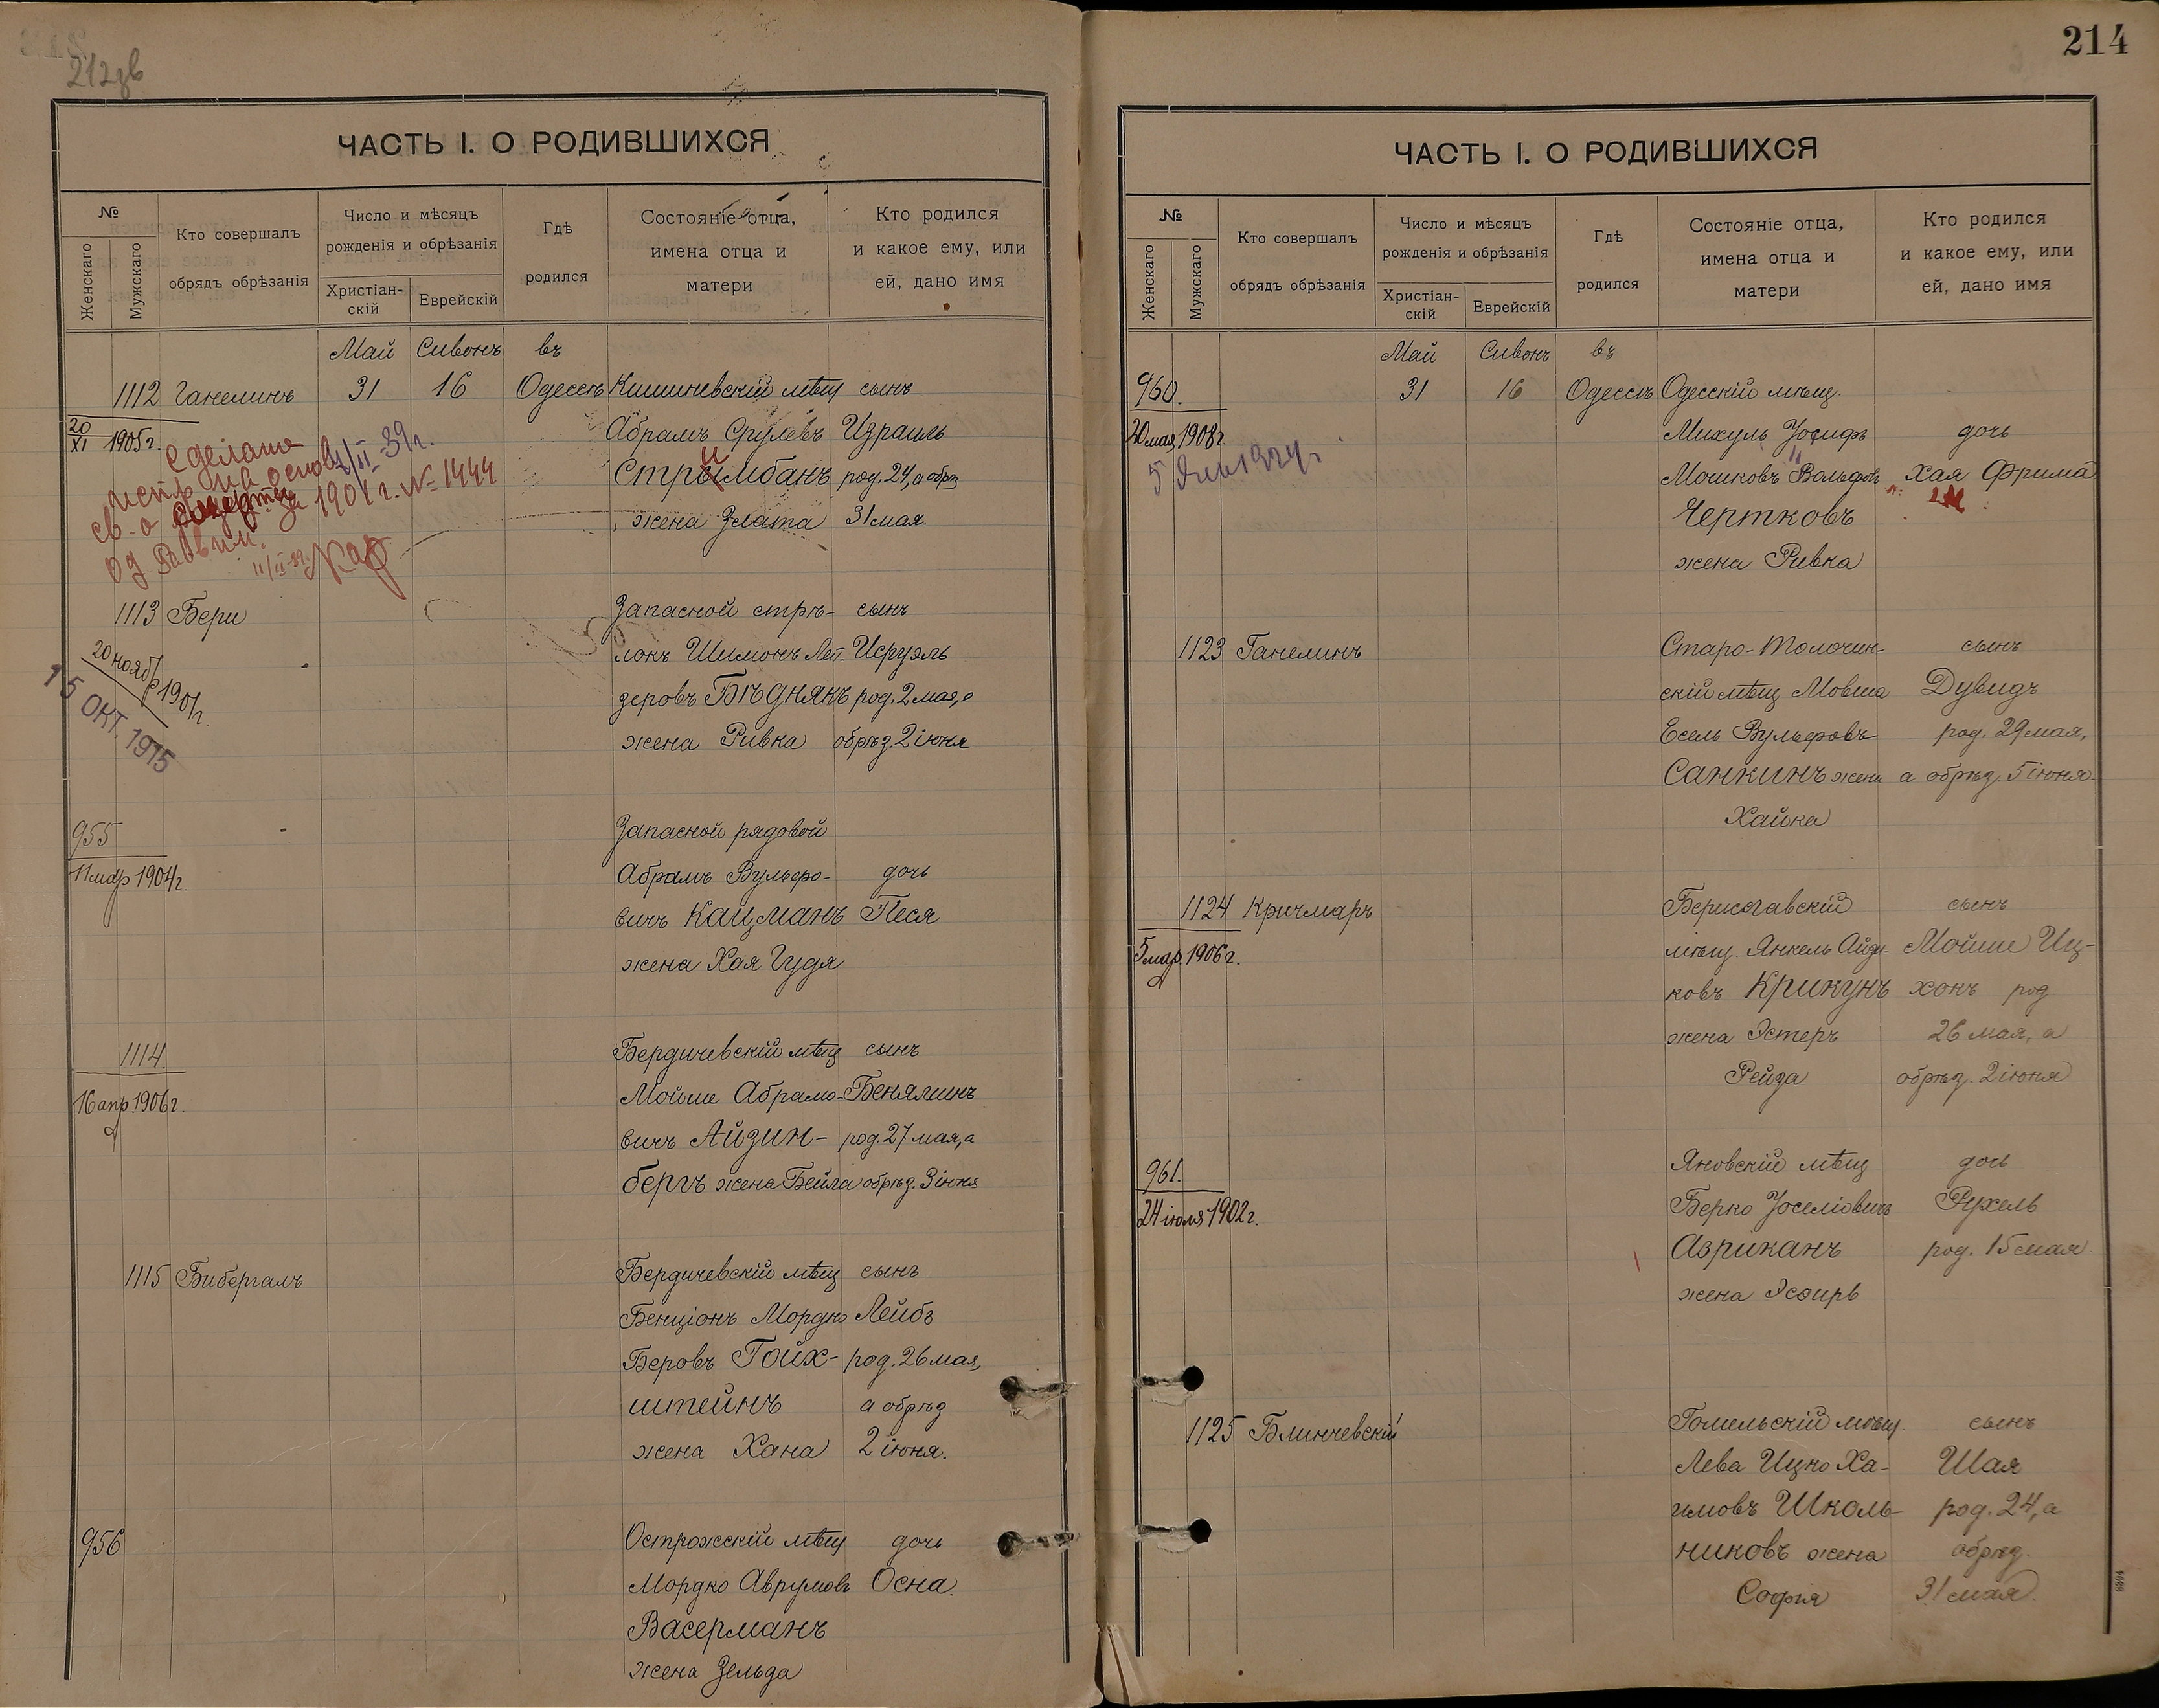 212зв
ЧАСТЬ I. О РОДИВШИХСЯ
№
Женскаго
Мужскаго
Кто совершалъ
обрядъ обрѣзанія
Число и мѣсяцъ
рожденія и обрѣзанія
Христіан-
скій
Еврейскій
Гдѣ
родился
Состояніе отца,
имена отца и
матери
Кто родился
и какое ему, или
ей, дано имя
Май Сивонъ въ
1112 Ганелинъ 31 16 Одессѣ Кишиневскій мѣщ сынъ
20/XI 1905г. Абрамъ Срулевъ Израиль
Стрымбанъ род. 24, а обрѣз
и
жена Злата 31 мая.
Сделано
на основ. /II-39г.
св. о за 1901г. № 1444
11/II-39
1113 Бери Запасной стрѣ- сынъ
локъ Шимонъ Лей- Исруэль
20 нояб 190 г.
15 ОКТ. 1915
зеровъ Бѣднякъ род. 2 мая, а
жена Ривка обрѣз. 2 іюня
955 Запасной рядовой
11 мар 1904г. Абрамъ Вульфо- дочь
вичъ Кацманъ Песя
жена Хая Гудя
1114. Бердичевскій мѣщ сынъ
16 апр. 1906г. Мойше Абрамо- Беняминъ
вичъ Айзин- род. 27 мая, а
бергъ жена Бейла обрѣз. 3 іюня
1115 Бибергалъ Бердичевскій мѣщ сынъ
Бенціонъ Мордко Лейбъ
Беровъ Гойх- род. 26 мая,
штейнъ а обрѣз
жена Хана 2 іюня.
956 Острожскій мѣщ дочь
Мордко Аврумовъ Осна.
Васерманъ
жена Зельда
214
ЧАСТЬ I. О РОДИВШИХСЯ
№
Женскаго
Мужскаго
Кто совершалъ
обрядъ обрѣзанія
Число и мѣсяцъ
рожденія и обрѣзанія
Христіан-
скій
Еврейскій
Гдѣ
родился
Состояніе отца,
имена отца и
матери
Кто родился
и какое ему, или
ей, дано имя
Май Сивонъ въ
960. 31 16 Одессѣ Одесскій мѣщ.
20 мая 1908г. Михуль Іосифъ дочь
Мошковъ Вольфовъ Хая Фрима
Чертковъ
жена Ривка
1123 Ганелинъ Старо-Толочин- сынъ
скій мѣщ Мовша Дувидъ
Есель Вульфовъ род. 29 мая,
Санкинъ жена а обрѣз. 5 іюня
Хайка
1124 Кричмаръ Бериславскій сынъ
5 мар. 1906г. мѣщ. Янкель Айзи- Мойше Иц-
ковъ Крикунъ хокъ род
жена Эстеръ 26 мая, а
Рейза обрѣз. 2 іюня
961. Яновскій мѣщ дочь
24 іюля 1902г. Берко Іоселіовичъ Рухель
Азриканъ род. 15 мая
жена Эсѳирь
1125 Блинчевскій Гомельскій мѣщ. сынъ
Лева Ицко Ха- Шая
имовъ Школь- род. 24, а
никовъ жена обрѣз.
Софія 31 мая.